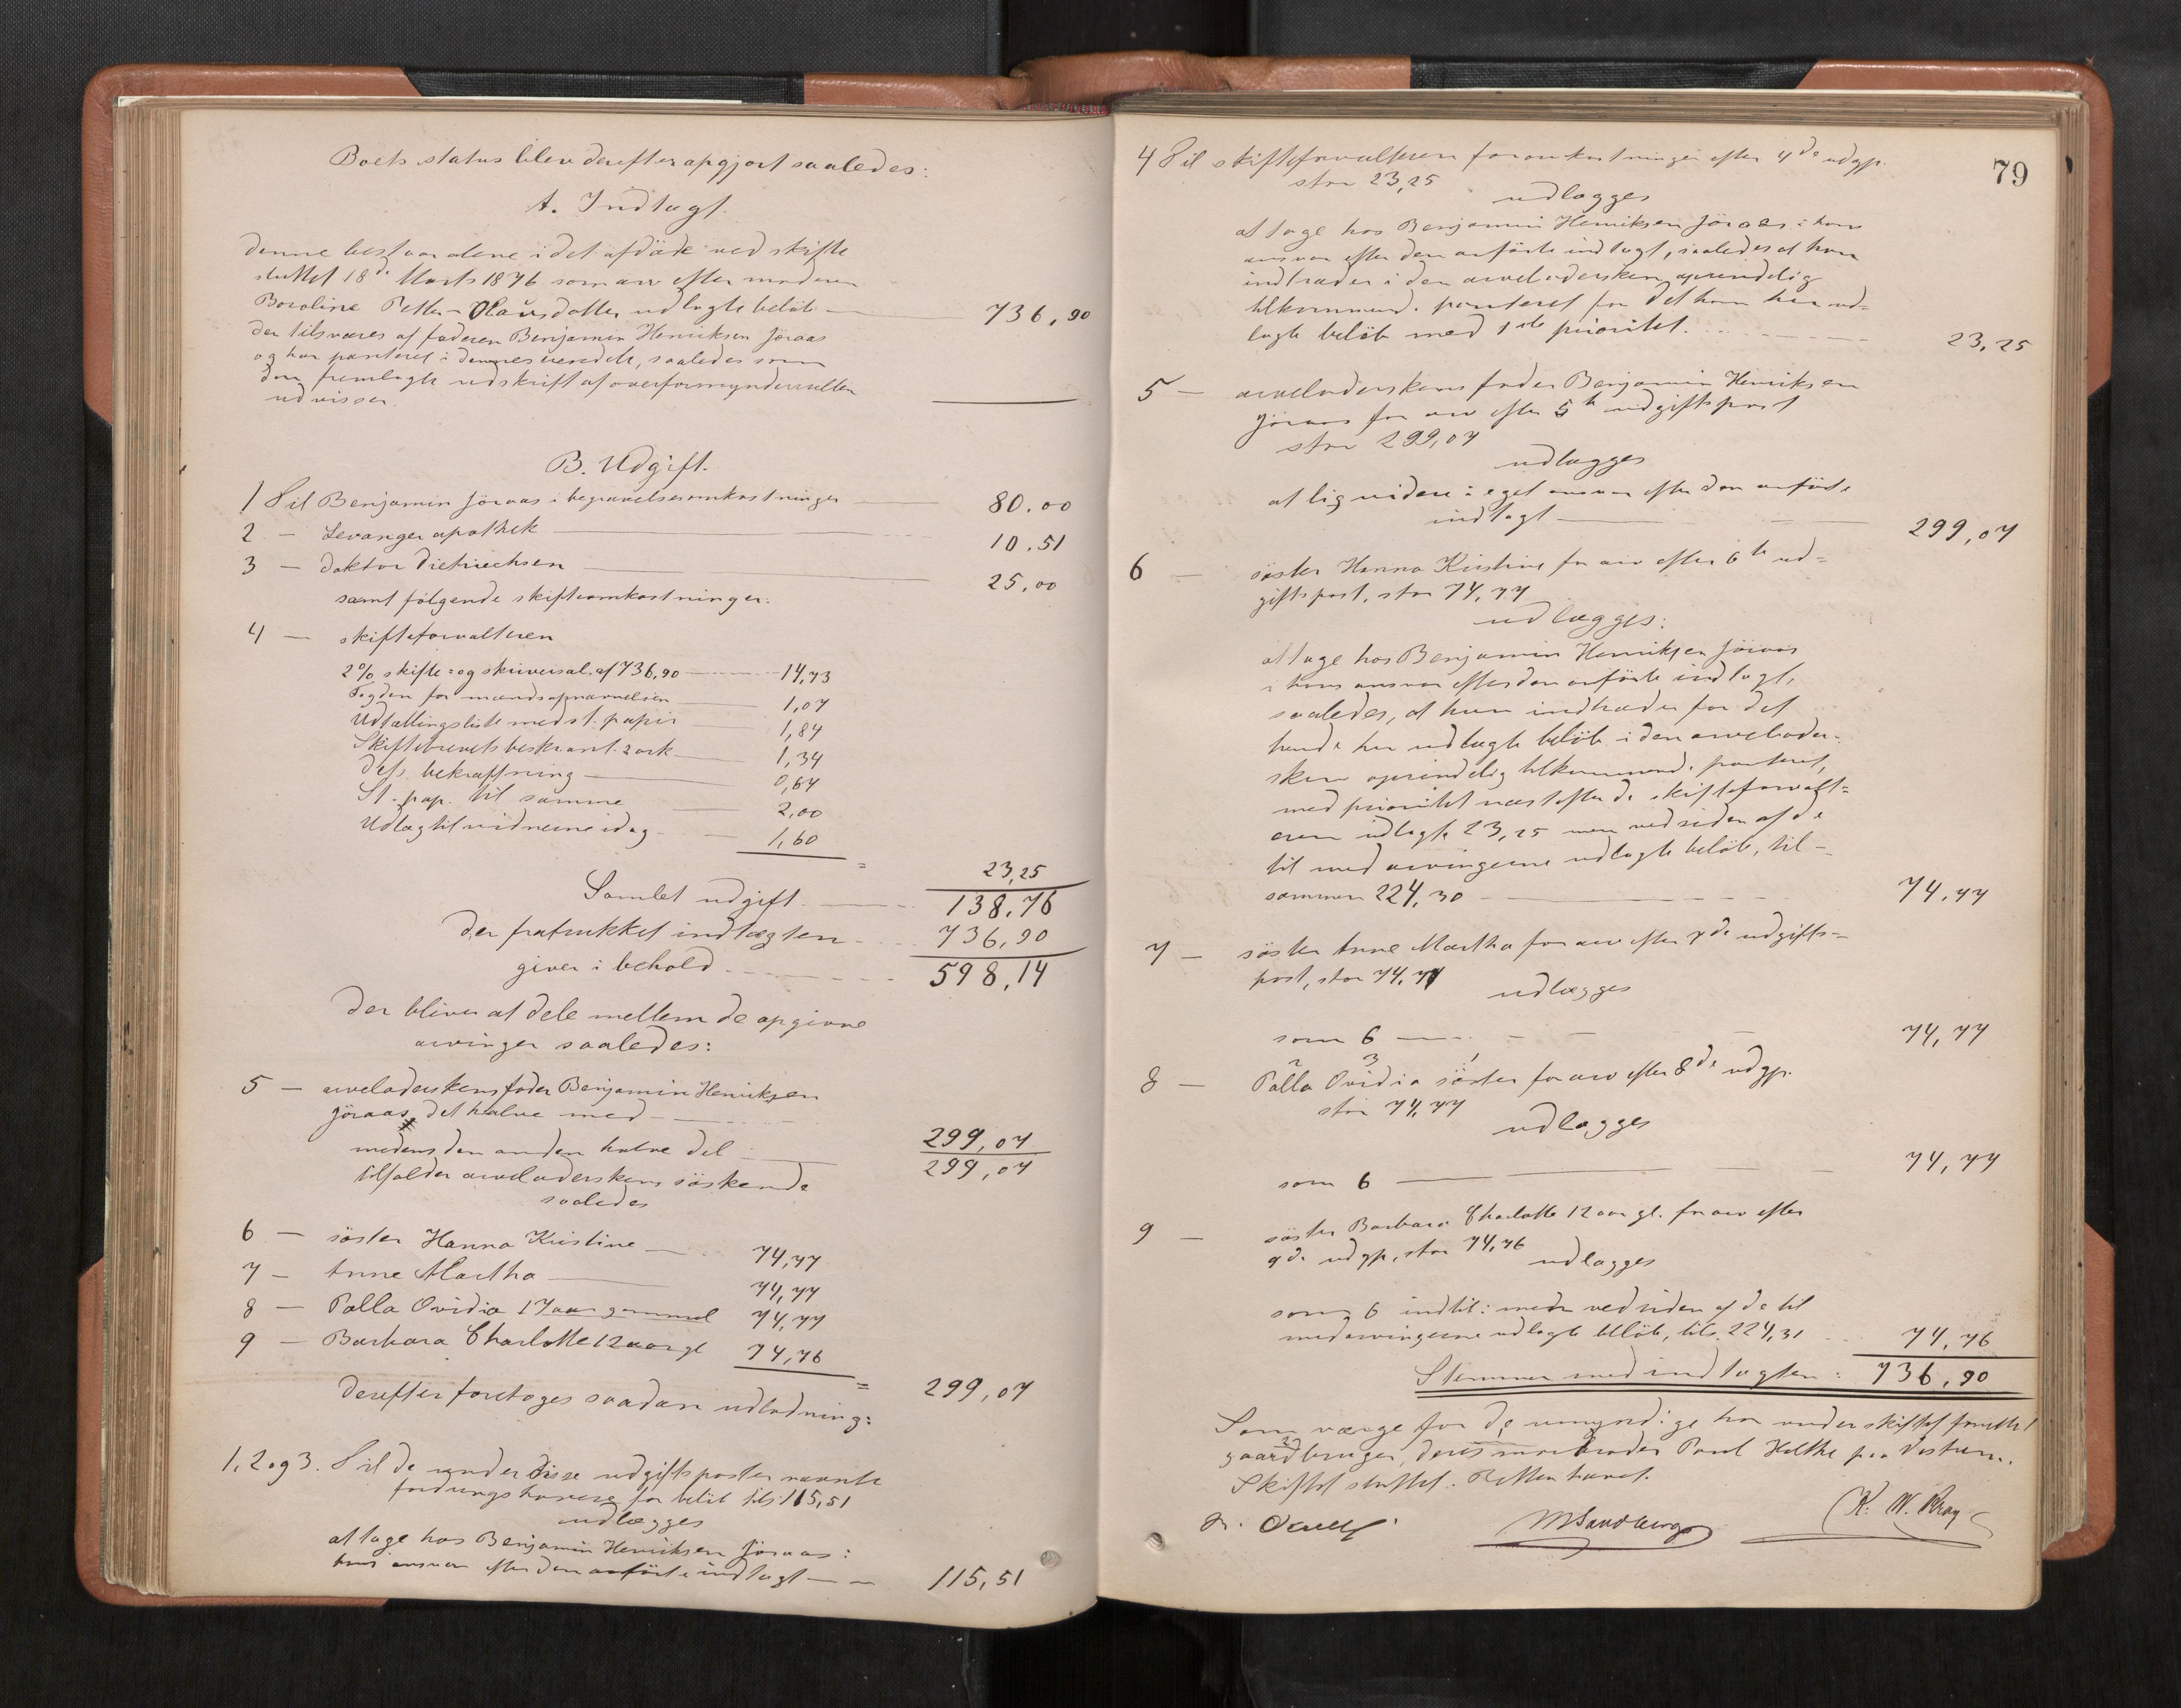 Boets status blev derefter opgjort saaledes:
A. Indtægt.
denne bestaar alene i det afdøde ved skifte
sluttet 18de Marts 1876 som arv efter moderen
Boroline Petter-Olausdatter udlagte beløb — 736,90
der tilsvares af faderen Benjamin Henriksen Jøraas
og har panteret i dennes eiendele, saaledes som
den fremlagte udskrift af overformynderrullen
udviser.
B. Udgift.
1 Til Benjamin Jøraas i begravelsesomkostninger — 80.00
2 — Levanger apothek — 10.51
3 — doktor Dietrichsen — 25,00
samt følgende skifteomkostninger:
4 — skifteforvalteren
2% skifte- og skriversal. af 736,90 — 14,73
Fogden for mændsopnævnelsen — 1,07
Udtællingsliste med st. papir — 1,87
Skiftebrevets beskr. ant. 2 ark — 1,34
dets bekræftning — 0,64
St. pap. til samme — 2,00
Udlæg til vidnerne idag — 1,60
= 23,25
Samlet udgift — 138,76
der fratrukket indtægten — 736,90
giver i behold — 598,14
der bliver at dele mellem de opgivne
arvinger saaledes:
5 — arveladerskens fader Benjamin Henriksen
Jøraas det halve med — 299,07
medens den anden halve del — 299,07
tilfalder arveladerskens søskende
saaledes
6 — søster Hanna Kristine — 74,77
7 — Anne Martha — 74,77
8 — Palla Ovidia 17 aar gammel 74,77
9 — Barbara Charlotte 12 aar gl 74,76
= 299,07
Derefter foretages saadan udlodning:
1, 2 og 3. Til de under disse udgiftsposter nævnte
fordringshavere for beløb tils. 115,51
udlægges
at tage hos Benjamin Henriksen Jøraas i
hans ansvar efter den anførte indtægt — 115,51
79
4 Til skifteforvalteren for omkostninger efter 4de udgp.
stor 23,25
udlægges
at tage hos Benjamin Henriksen Jøraas i hans
ansvar efter den anførte indtægt, saaledes at han
indtræder i den arveladersken oprindelig
tilkommend. panteret for det ham her ud-
lagte beløb med 1ste prioritet. — 23,25
5 — arveladerskens fader Benjamin Henriksen
Jøraas for arv efter 5te udgiftspost
stor 299,07
udlægges
at liqvidere i eget ansvar efter den anførte
indtægt — 299,07
6 — søster Hanna Kristine for arv efter 6te ud-
giftspost, stor 74,77
udlægges:
at tage hos Benjamin Henriksen Jøraas
i hans ansvar efter den anførte indtægt,
saaledes, at hun indtræder for det
hende her udlagte beløb i den arvelader-
sken oprindelig tilkommend. panteret,
med prioritet næstefter de skifteforvalt-
eren udlagte 23,25 men ved siden af de
til medarvingerne udlagte beløb, til-
sammen 224,30 — 74,77
7 — søster Anne Martha for arv efter 7de udgifts-
post, stor 74,77
udlægges
som 6 — 74,77
8 — Palla Ovidia søster for arv efter 8de udgp.
stor 74,77
udlægges
som 6 — 74,77
9 — søster Barbara Charlotte 12 aar gl. for arv efter
9de udgp, stor 74,76
udlægges
som 6 indtil: men ved siden af de til
medarvingerne udlagte beløb, tils. 224,31 — 74,76
Stemmer med indtægten: 736,90
Som værge for de umyndige har under skiftet
gaardbruger, deres morbroder Paul
Skiftet sluttet. Retten hævet.
MSandberg